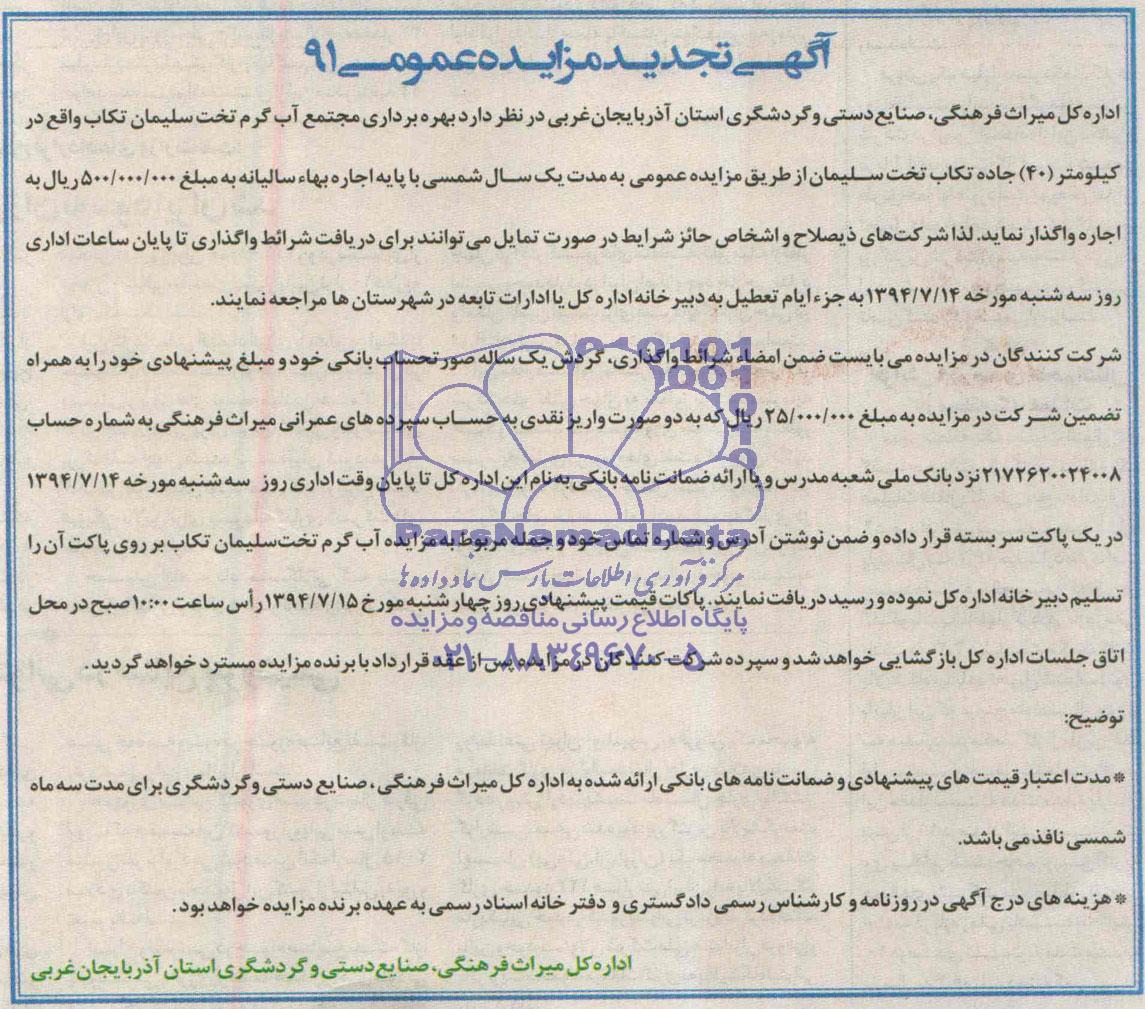 آگهی تجدید مزایده عمومی ۹۱
اداره کل میراث فرهنگی، صنایع دستی و گردشگری استان آذربایجان غربی در نظر دارد بهره برداری مجتمع آب گرم تخت سلیمان تکاب واقع در
کیلومتر (۴۰) جاده تکاب تخت سلیمان از طریق مزایده عمومی به مدت یک سال شمسی با پایه اجاره بهاء سالیانه به مبلغ ۵۰۰/۰۰۰/۰۰۰ ریال به
اجاره واگذار نماید. لذا شرکت‌های ذیصلاح و اشخاص حائز شرایط در صورت تمایل می‌توانند برای دریافت شرائط واگذاری تا پایان ساعات اداری
روز سه شنبه مورخه ۱۳۹۴/۷/۱۴ به جزء ایام تعطیل به دبیرخانه اداره کل یا ادارات تابعه در شهرستان ها مراجعه نمایند.
شرکت کنندگان در مزایده می بایست ضمن امضاء شرائط واگذاری، گردش یک ساله صورتحساب بانکی خود و مبلغ پیشنهادی خود را به همراه
تضمین شرکت در مزایده به مبلغ ۲۵/۰۰۰/۰۰۰ ریال که به دو صورت واریز نقدی به حساب سپرده های عمرانی میراث فرهنگی به شماره حساب
۲۱۷۲۶۲۰۰۲۴۰۰۸ نزد بانک ملی شعبه مدرس و یا ارائه ضمانت نامه بانکی به نام این اداره کل تا پایان وقت اداری روز سه شنبه مورخه ۱۳۹۴/۷/۱۴
در یک پاکت سر بسته قرار داده و ضمن نوشتن آدرس و شماره تماس خود و جمله مربوط به مزایده آب گرم تخت‌سلیمان تکاب بر روی پاکت آن را
تسلیم دبیرخانه اداره کل نموده و رسید دریافت نمایند. پاکات قیمت پیشنهادی روز چهارشنبه مورخ ۱۳۹۴/۷/۱۵ رأس ساعت ۱۰:۰۰ صبح در محل
اتاق جلسات اداره کل بازگشایی خواهد شد و سپرده شرکت کنندگان در مزایده پس از عقد قرارداد با برنده مزایده مسترد خواهد گردید.
توضیح:
* مدت اعتبار قیمت های پیشنهادی و ضمانت نامه های بانکی ارائه شده به اداره کل میراث فرهنگی، صنایع دستی و گردشگری برای مدت سه ماه
شمسی نافذ می باشد.
* هزینه های درج آگهی در روزنامه و کارشناس رسمی دادگستری و دفتر خانه اسناد رسمی به عهده برنده مزایده خواهد بود.
اداره کل میراث فرهنگی، صنایع دستی و گردشگری استان آذربایجان غربی
ParsNamadData
مرکز فرآوری اطلاعات پارس نماد داده ها
پایگاه اطلاع رسانی مناقصه و مزایده
۰۲۱-۸۸۳۴۹۶۷۰-۵